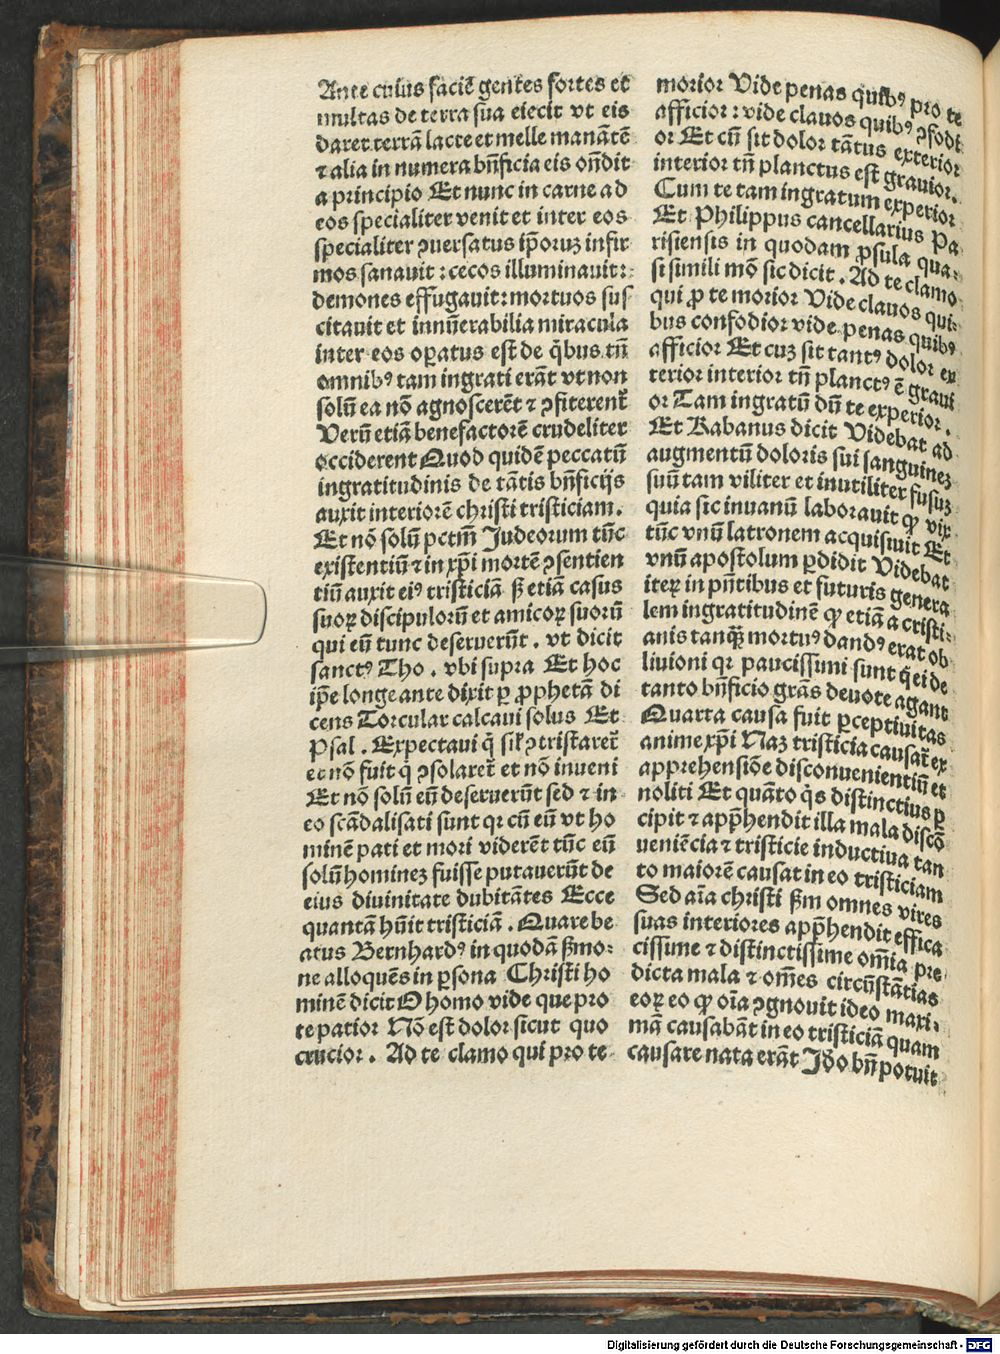 Ante cuius faciē gentes fortes et
multas de terra sua eiecit vt eis
daret terrā lacte et melle manātē
⁊ alia in numera bn̄ficia eis on̄dit
a principio Et nunc in carne ad
eos specialiter venit et inter eos
specialiter ꝯuersatus ip̄oruꝫ infir
mos sanauit : cecos illuminauit :
demones effugauit : mortuos sus
citauit et innūerabilia miracula
inter eos oꝑatus est de q̄bus tn̄
omnibꝰ tam ingrati erāt vt non
solū ea nō agnoscerēt ⁊ ꝯfiterent̄
Verū etiā benefactorē crudeliter
occiderent Quod quidē peccatū
ingratitudinis de tātis bn̄ficijs
auxit interiorē christi tristiciam.
Et nō solū pctm̄ Judeorum tūc
existentiū ⁊ in xp̄i mortē ꝯsentien
tiū auxit eiꝰ tristiciā sꝫ etiā casus
suoꝝ discipulorū et amicoꝝ suorū
qui eū tunc deseruerūt . vt dicit
sanctꝰ Tho . vbi supra Et hoc
ip̄e longe ante dixit ꝑ ꝓphetā di
cens Torcular calcaui solus Et
Psal . Expectaui q̄ sil̄ ꝯtristaret̄
et nō fuit q̄ ꝯsolaret̄ et nō inueni
Et nō solū eū deseruerūt sed ⁊ in
eo scādalisati sunt qꝛ cū eū vt ho
minē pati et mori viderēt tūc eū
solū homineꝫ fuisse putauerūt de
eius diuinitate dubitātes Ecce
quantā hūit tristiciā . Quare be
atus Bernhardꝰ in quodā sꝫmo-
ne alloquēs in ꝑsona Christi ho
minē dicit O homo vide que pro
te patior Nō est dolor sicut quo
crucior . Ad te clamo qui pro te
morior Vide penas quibꝰ pro te
afficior : vide clauos quibꝰ ꝯfodi
or Et cū sit dolor tātus exterior
interior tn̄ planctus est grauior.
Cum te tam ingratum experior
Et Philippus cancellarius Pa
risiensis in quodam ꝓsula qua-
si simili mō sic dicit . Ad te clamo
qui ꝓ te morior Vide clauos qui-
bus confodior vide penas quibꝰ
afficior Et cuꝫ sit tantꝰ dolor ex
terior interior tn̄ planctꝰ ē graui
or Tam ingratū dū te experior .
Et Rabanus dicit Videbat ad
augmentū doloris sui sanguineꝫ
suū tam viliter et inutiliter fusuꝫ
quia sic inuanū laborauit ꝙ vix
tūc vnū latronem acquisiuit Et
vnū apostolum ꝑdidit Videbat
iteꝝ in pn̄tibus et futuris genera
lem ingratitudinē ꝙ etiā a cristi-
anis tanqꝫ mortuꝰ dandꝰ erat ob
liuioni qꝛ paucissimi sunt q̄ ei de
tanto bn̄ficio grās deuote agant
Quarta causa fuit ꝑceptiuitas
anime xp̄i Naꝫ tristicia causat̄ ex
apprehensiōe disconuenientiū et
noliti Et quāto q̄s distinctius ꝑ
cipit ⁊ app̄hendit illa mala discō
ueniēcia ⁊ tristicie inductiua tan
to maiorē causat in eo tristiciam
Sed aīa christi sꝫm omnes vires
suas interiores app̄hendit effica
cissime ⁊ distinctissime om̄ia pre
dicta mala ⁊ om̄es circūstātias
eoꝝ eo ꝙ oīa ꝯgnouit ideo maxi-
mā causabāt in eo tristiciā quam
causare nata erāt Jdo bn̄ potuit
Digitalisierung gefördert durch die Deutsche Forschungsgemeinschaft - DFG